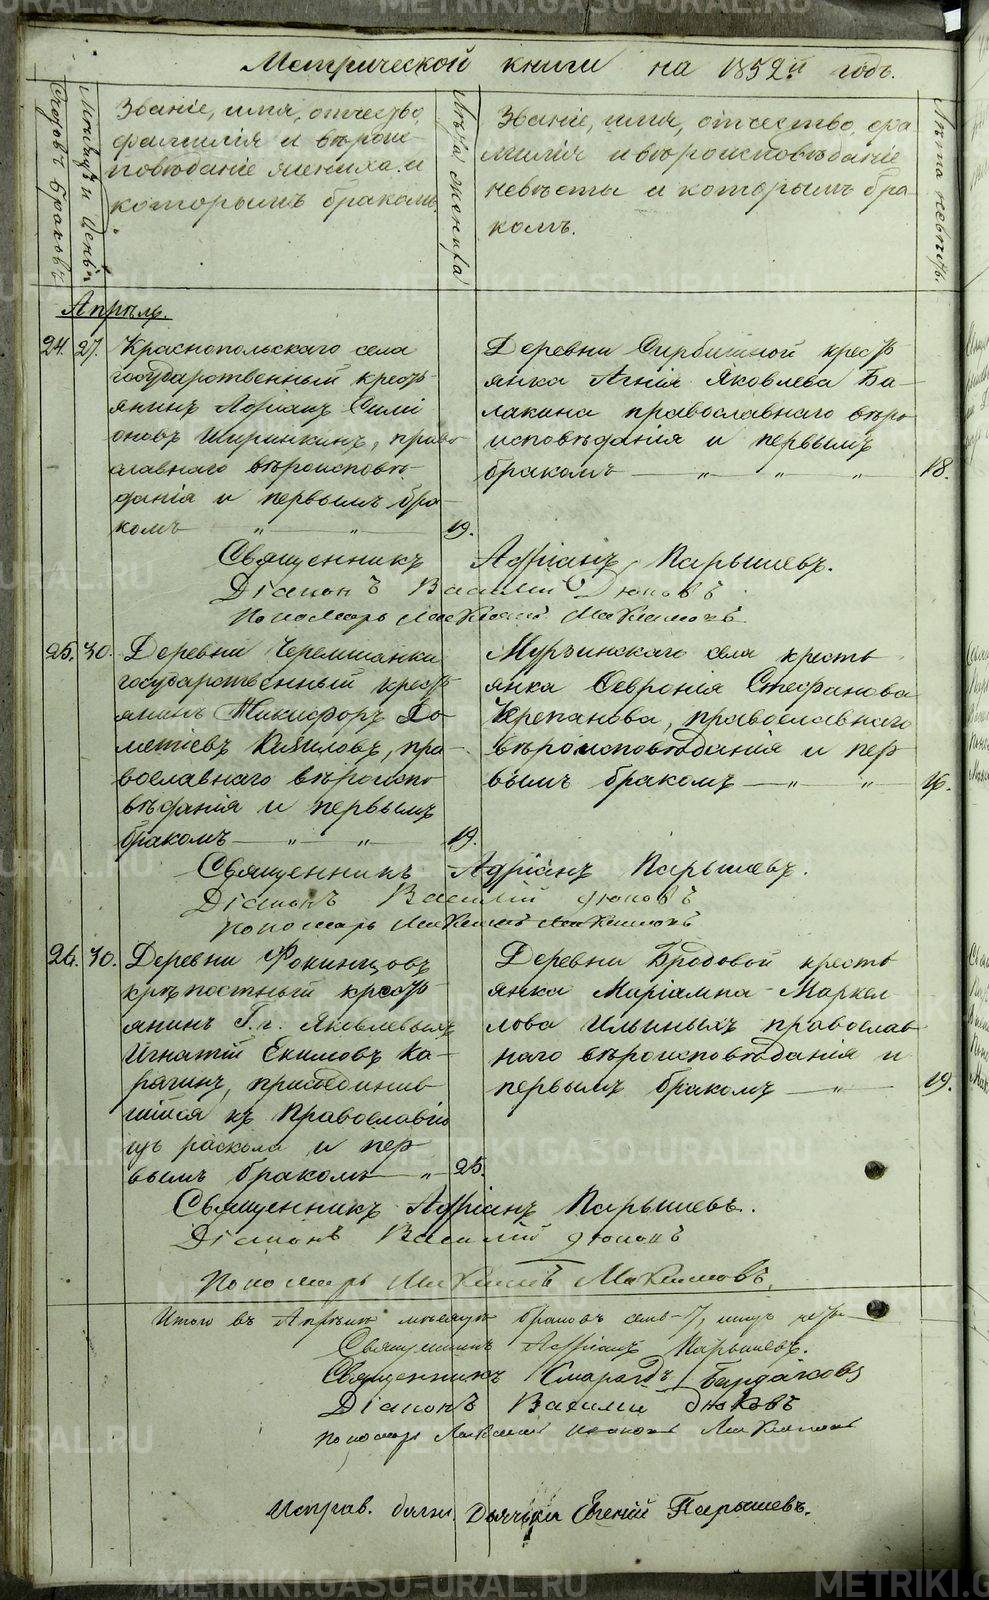 METRIKI.GASO-URAL.RU
Метрической книги на 1852й годъ.
Счетъ браковъ.
Мѣсяцъ и день.
Званіе, имя, отчество,
фамилія и вѣроис-
повѣданіе жениха и
которымъ бракомъ.
Лѣта жениха
Званіе, имя, отчество, фа
милія и вѣроисповѣданіе
невѣсты и которымъ бра
комъ.
Лѣта невѣсты.
Апрѣль.
24. 27. Краснопольскаго села
государственный крест-
янинъ Адріанъ Симі
оновъ Ширинкинъ, право
славнаго вѣроисповѣ-
данія и первымъ бра-
комъ — " — " — 19.
Деревни Сирбишной крест
янка Агнія Яковлева Ба-
лакина православнаго вѣро
исповѣданія и первымъ
бракомъ — " — " — " — 18.
Священникъ Адріанъ Парышевъ.
Діаконъ Василій Дюковъ
Пономарь Максимъ Максимовъ
25. 30. Деревни Черемшанки
государственный крест
янинъ Никифоръ До
метіевъ правос-
вославнаго вѣроиспо
вѣданія и первымъ
бракомъ — " — " — 19.
Мурзинскаго села кресть
янка Февронія Стефанова
православнаго
вѣроисповѣданія и пер
вымъ бракомъ — " — "
Священникъ Адріанъ Парышевъ.
Діаконъ Василій Дюковъ
Пономарь Максимъ Максимовъ
26. 30. Деревни Фокинцовъ
крѣпостный крест-
янинъ Г.г. Яковлевыхъ
Игнатій Екимовъ Ка-
рягинъ, присоединив
шійся къ Православію
изъ раскола и пер
вымъ бракомъ — " 25.
Деревни Бродовой кресть
янка Маріамна Маркел
лова Ильиныхъ православ
наго вѣроисповѣданія и
первымъ бракомъ — " — 19.
Священникъ Адріанъ Парышевъ.
Діаконъ Василій Дюковъ
Пономарь Максимъ Максимовъ.
Итого въ Апрѣлѣ мѣсяцѣ браковъ семь - 7,
Священникъ Адріанъ Парышевъ.
Священникъ Смарагдъ Бирюковъ
Діаконъ Василій Дюковъ
Пономарь Максимъ Максимовъ
Исправ. должн. Дьячка Евгеній Парышевъ.
METRIKI.GASO-URAL.RU